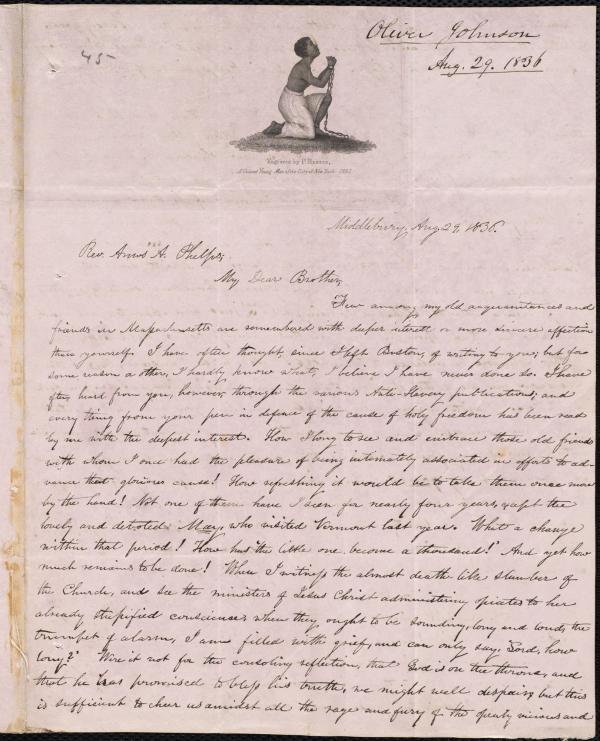 Oliver Johnson
Aug. 29. 1836
45
Engraved by P. Reason,
A Colored Young Man of the City of New York 1835
Middlebury, Aug. 29, 1836.
Rev. Amos A. Phelps,
My Dear Brother,
Few among my old acquaintances and
friends in Massachusetts are remembered with deeper interest or more sincere affection
than yourself. I have often thought, since I left Boston, of writing to you; but for
some reason or other, I hardly know what, I believe I have never done so. I have
often heard from you, however, through the various Anti-Slavery publications; and
every thing from your pen in defence of the cause of holy freedom has been read
by me with the deepest interest. How I long to see and embrace those old friends
with whom I once had the pleasure of being intimately associated in efforts to ad-
vance that glorious cause! How refreshing it would be to take them once more
by the hand! Not one of them have I seen for nearly four years, except the
lovely and devoted May, who visited Vermont last year. What a change
within that period! How has "the little one become a thousand!" And yet how
much remains to be done! When I witness the almost death like slumber of
the Church, and see the ministers of Jesus Christ administering opiates to her
already stupified conscience when they ought to be sounding, long and loud, the
trumpet of alarm, I am filled with grief, and can only say, "Lord, how
long?" Were it not for the consoling reflection, that God is on the throne, and
that he has promised to bless his truth, we might well despair; but this
is sufficient to cheer us amidst all the rage and fury of the openly vicious and